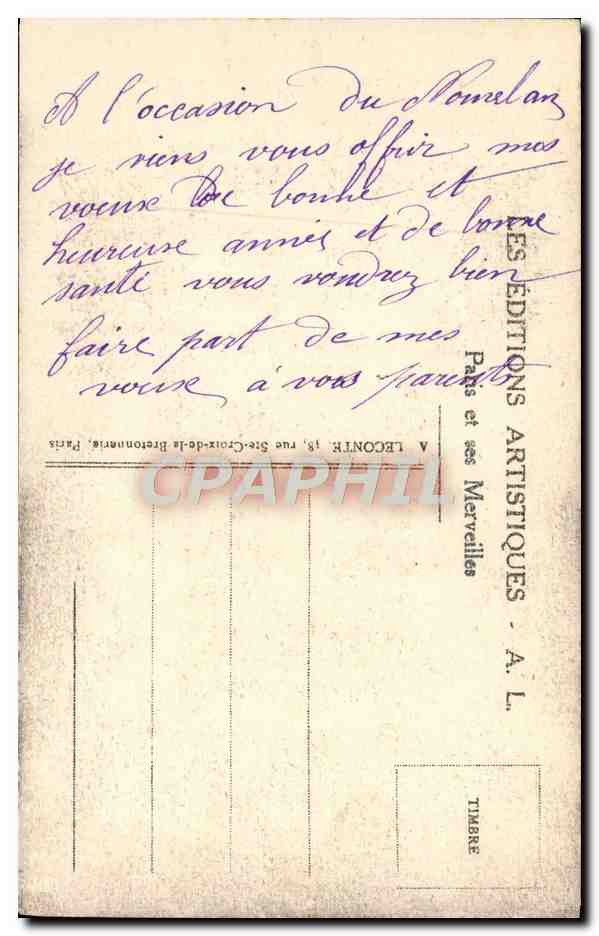 A l'occasion du Nouvel an
je viens vous offrir mes
voeux de bonne et
heureuse année et de bonne
santé vous voudrez bien
faire part de mes
voeux à vos parents
LES ÉDITIONS ARTISTIQUES - A. L.
Paris et ses Merveilles
A LECONTE, 38, rue Ste-Croix-de-la Bretonnerie, Paris
TIMBRE
CPAPHIL